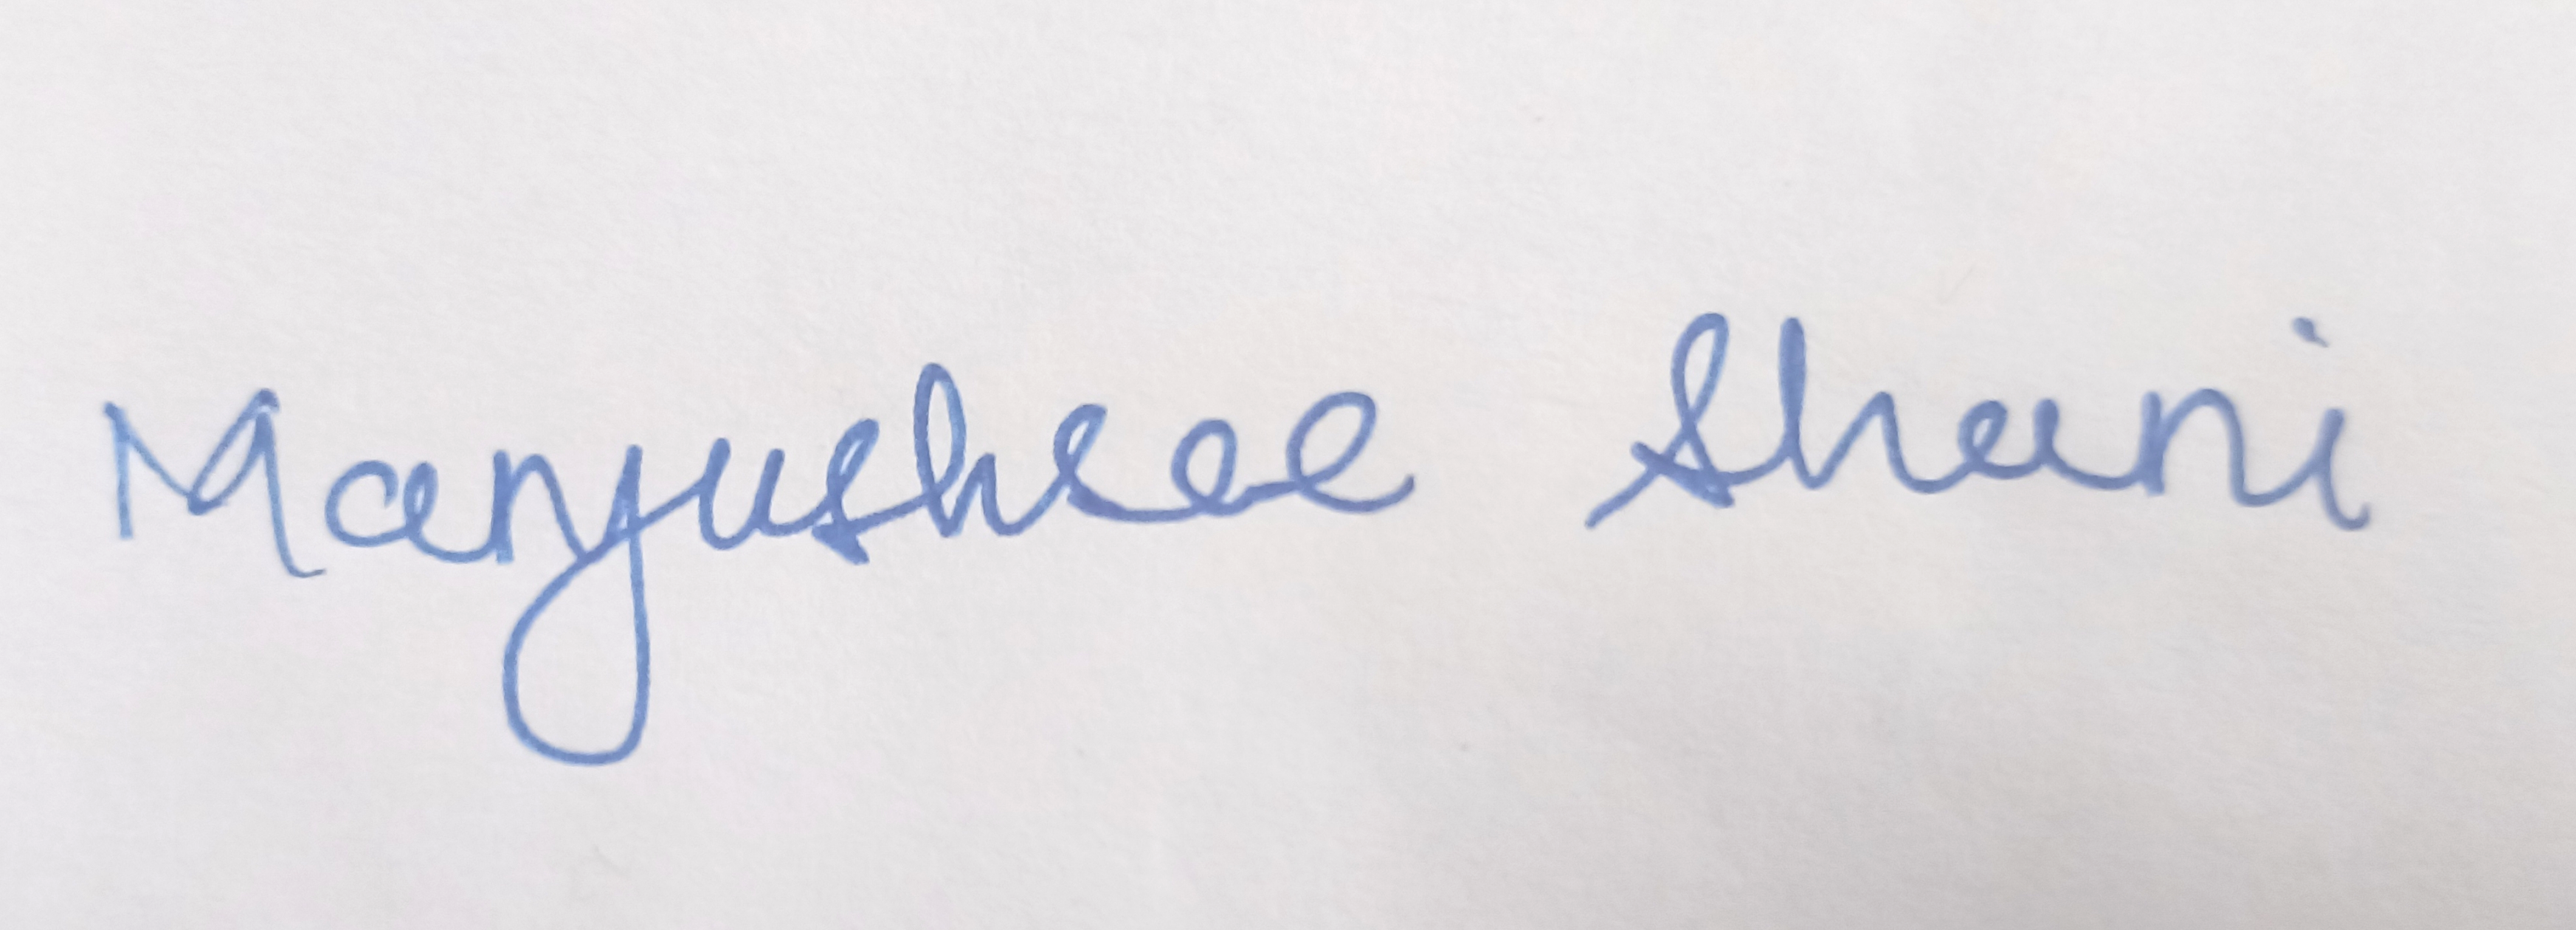 Manjushree Shani